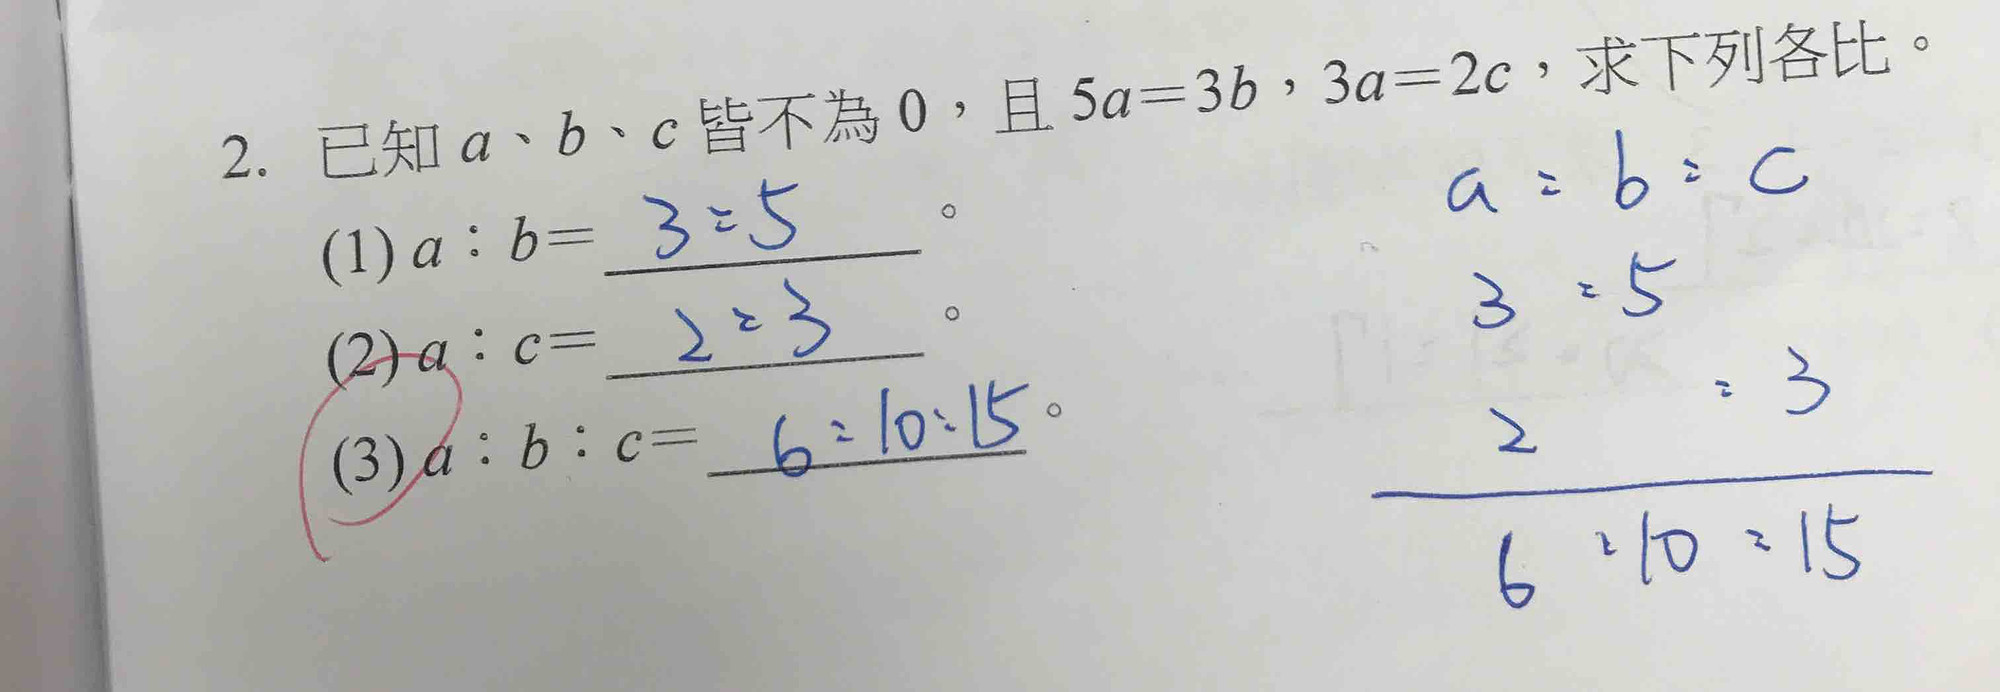 2. 已知 a、b、c 皆不為 0，且 5a=3b，3a=2c，求下列各比。
(1) a：b= 3:5 。
(2) a：c= 2:3 。
(3) a：b：c= 6:10:15 。
a : b : c
3 : 5
2 : 3
6 : 10 : 15